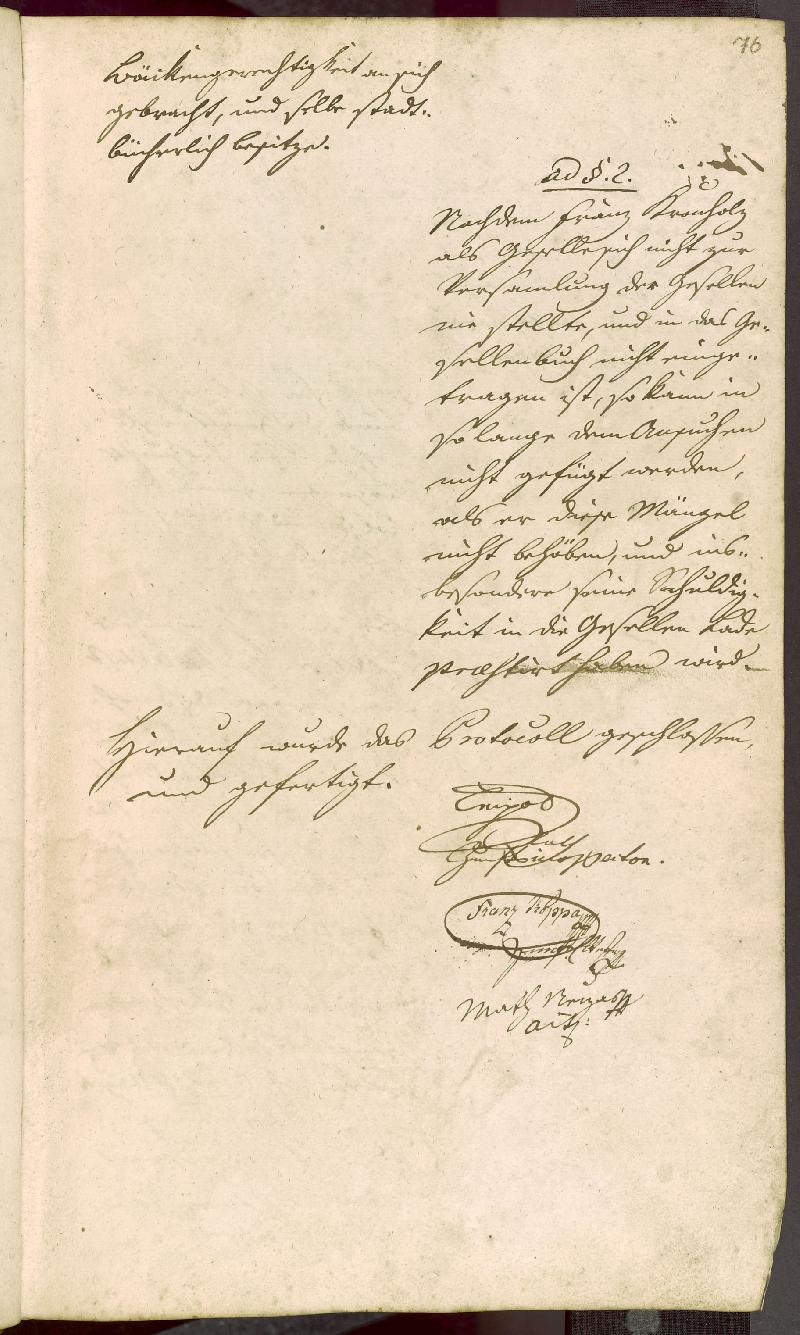 76
Bäckengerechtigkeit an sich
gebracht, und selbe stadt¬
bücherlich besitze.
ad §. 2.
Nachdem Franz Kronholz
als Geselle sich nicht zur
Versamlung der Gesellen
nie stellte, und in das Ge¬
sellenbuch nicht einge¬
tragen ist, so kann in
so lange dem Ansuchen
nicht gefügt werden,
als er diese Mängel
nicht behoben, und ins¬
besondere seine Schuldig¬
keit in die Gesellen Lade
præstirt haben wird.
Hierauf wurde das Protocoll geschlossen,
und gefertigt.
Franz
Math